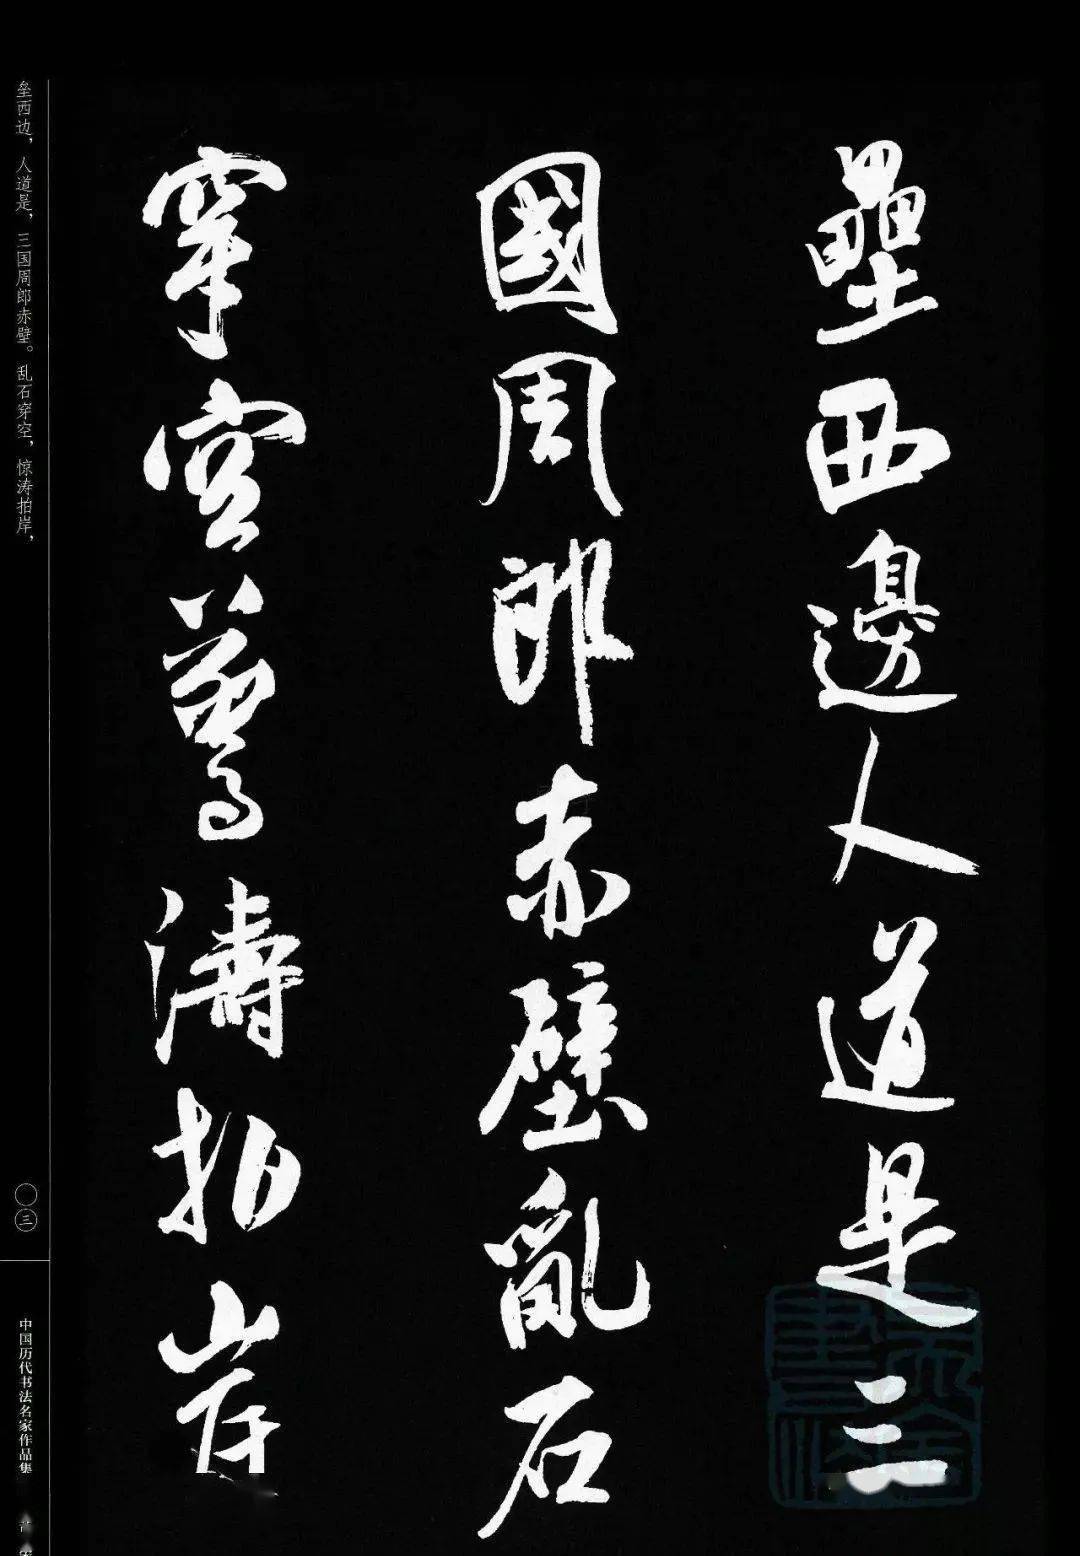 壘西邊人道是三
國周郎赤壁亂石
穿空驚濤拍岸
垒西边，人道是，三国周郎赤壁。乱石穿空，惊涛拍岸，
〇三
中国历代书法名家作品集